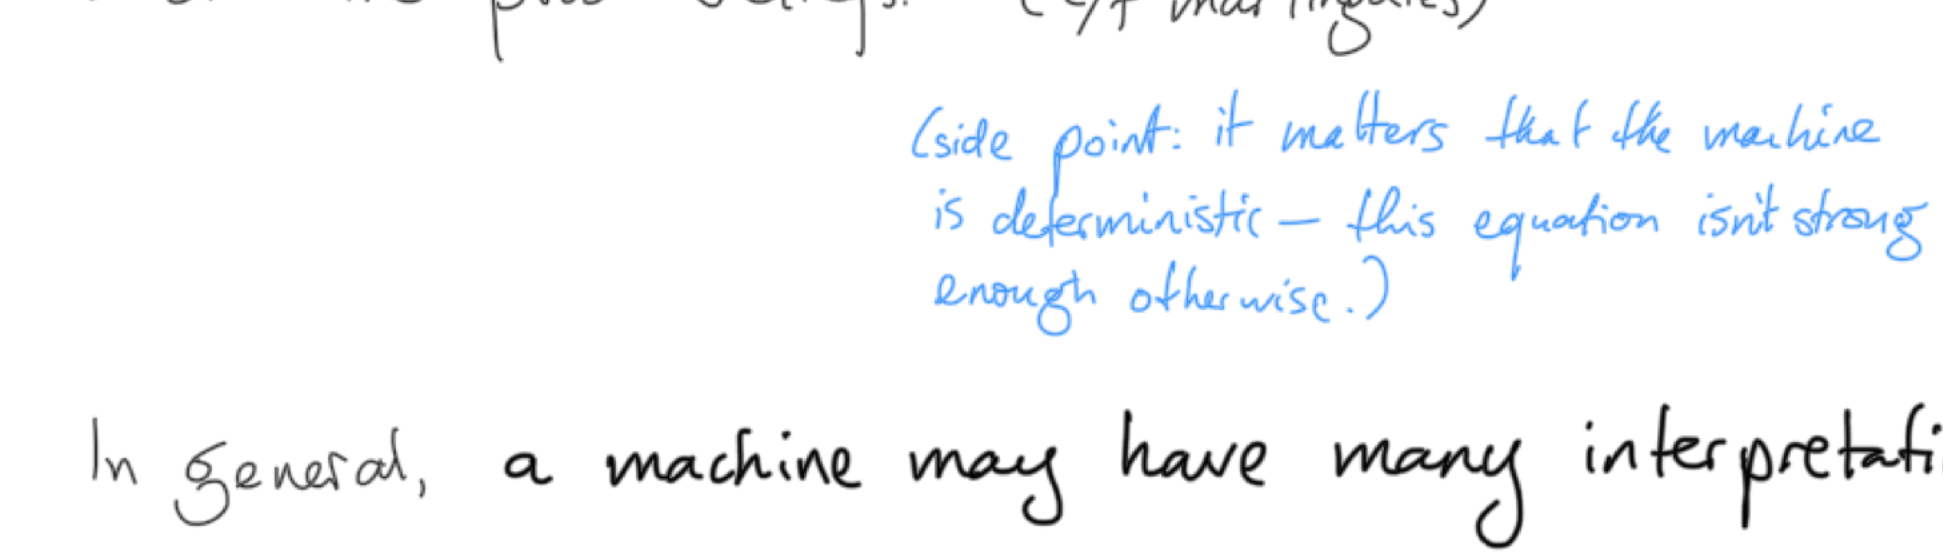 (c/f martingales)
(side point: it matters that the machine
is deterministic — this equation isn't strong
enough otherwise.)
In general, a machine may have many interpretati